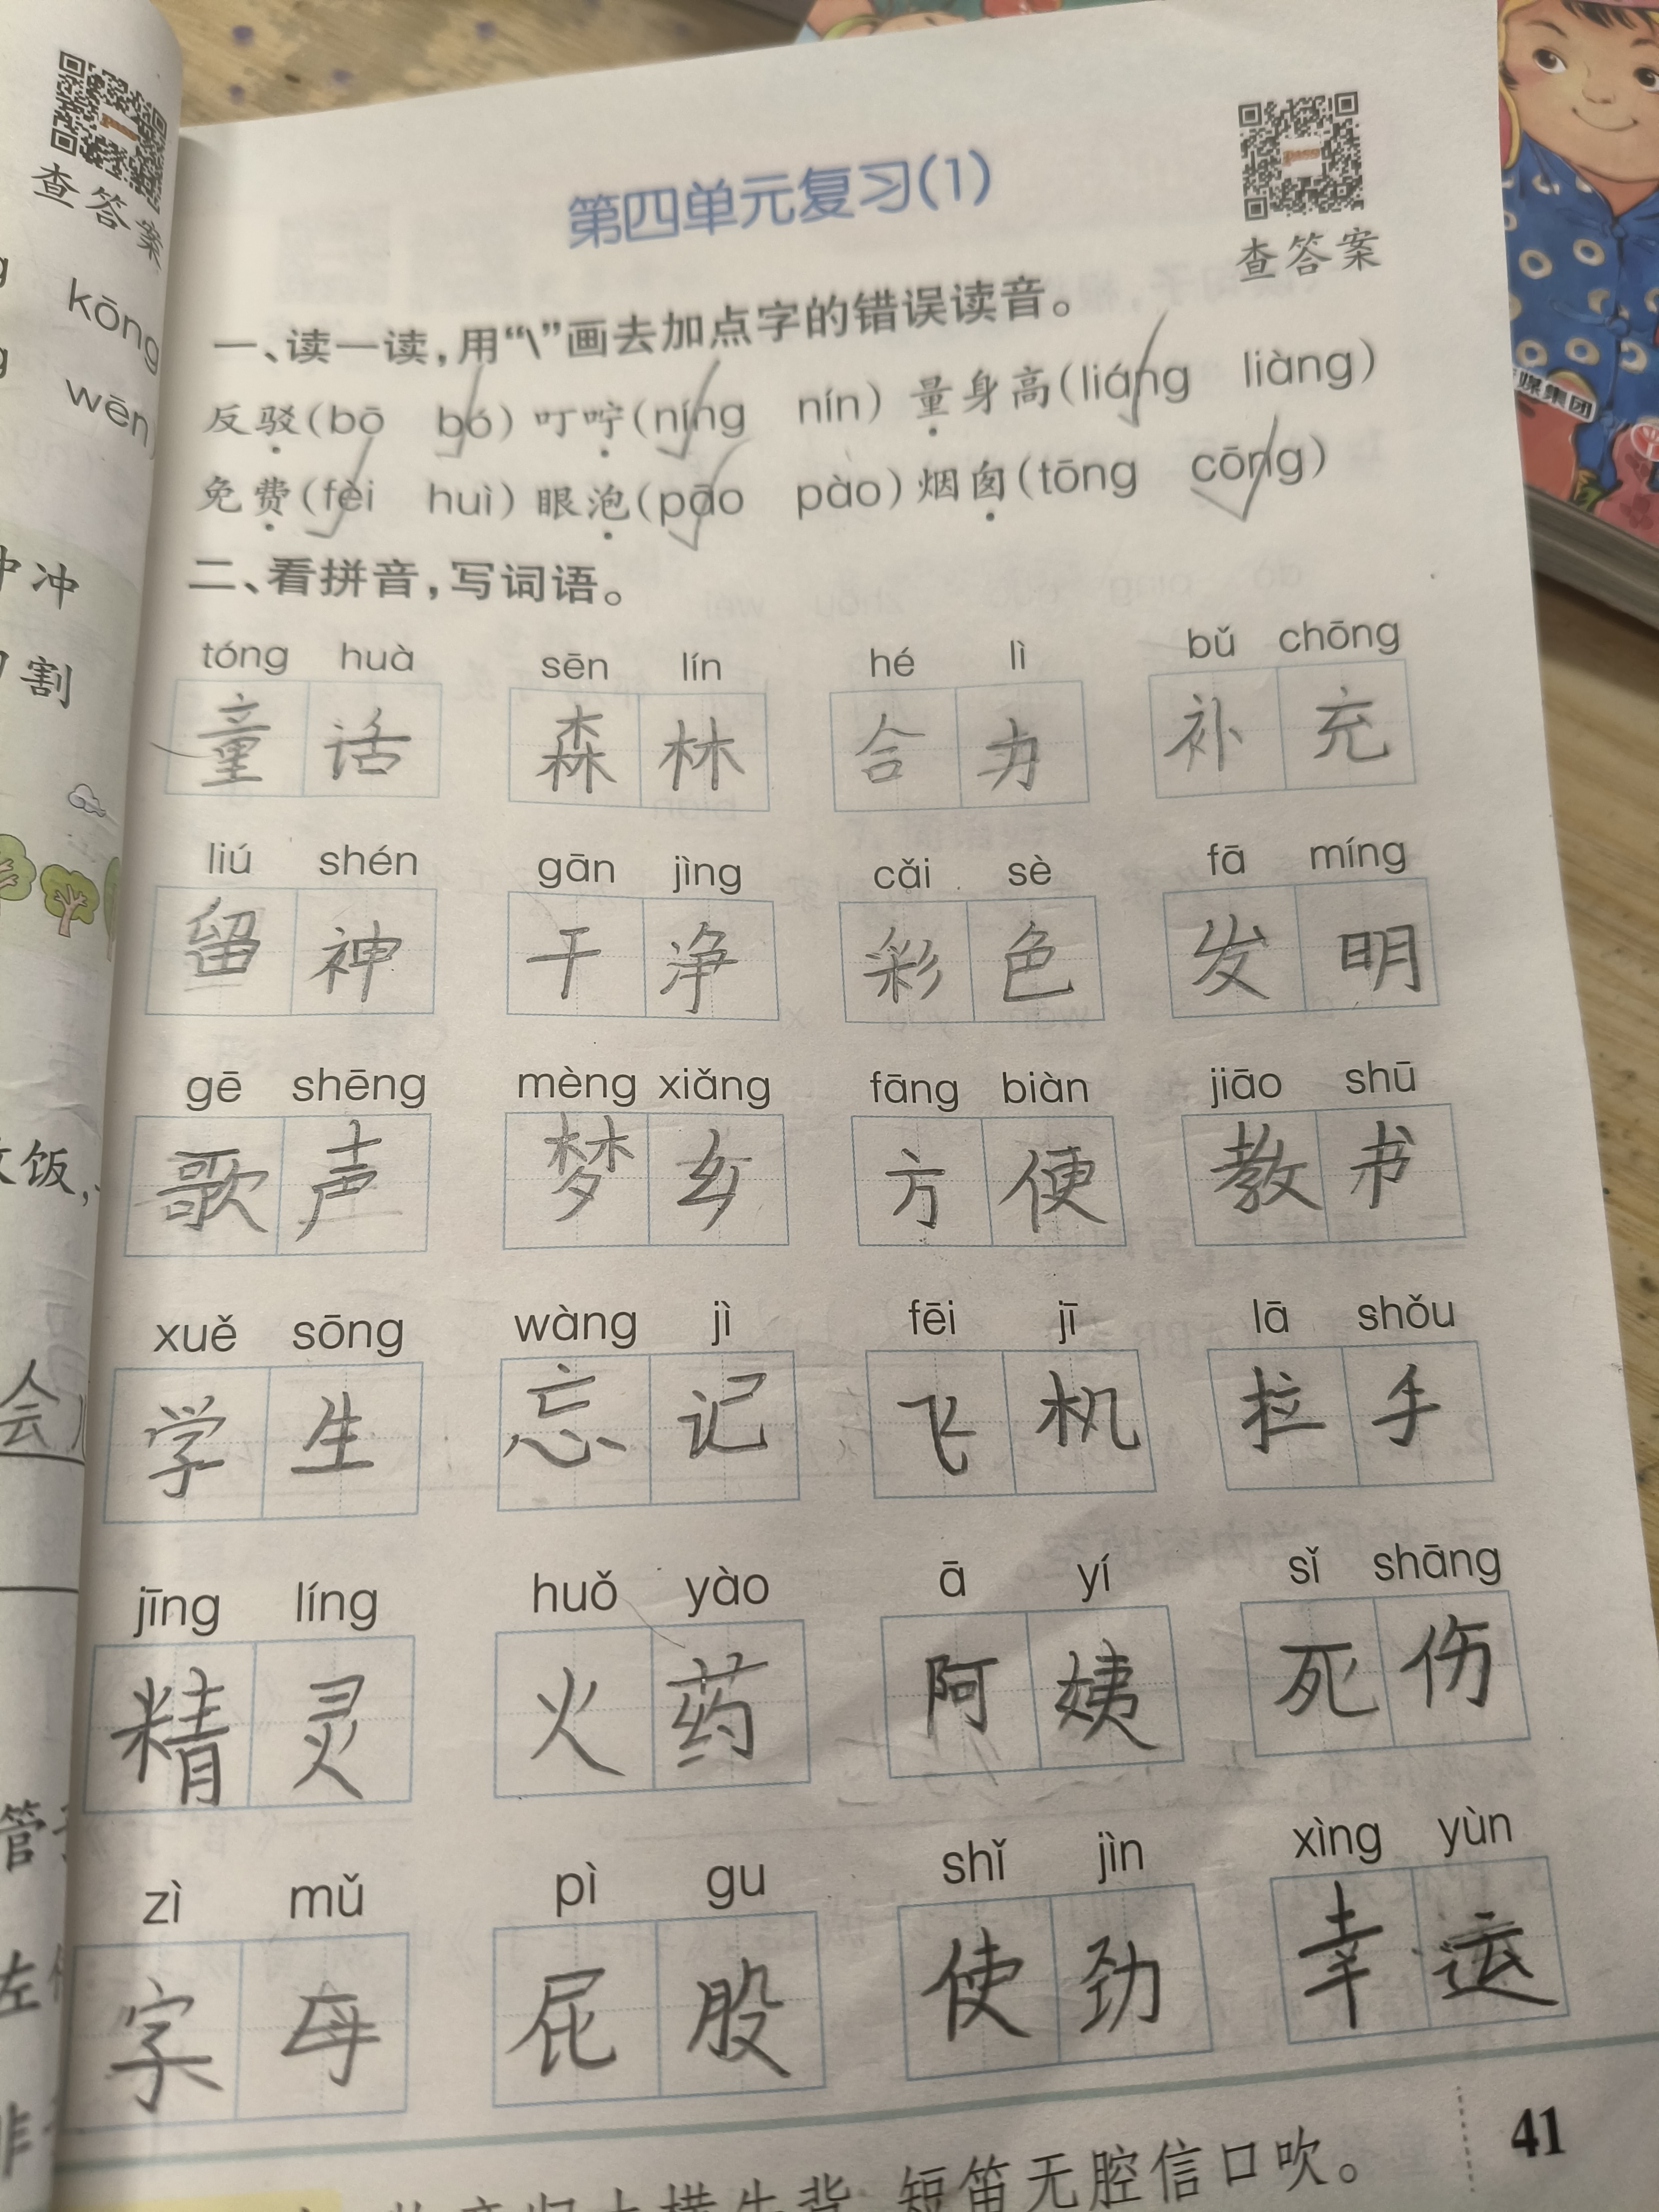 查答案
kōng
wēn
冲
割
饭,
会
管
第四单元复习(1)
查答案
一、读一读,用“\”画去加点字的错误读音。
反驳(bō bó) 叮咛(níng nín) 量身高(liáng liàng)
免费(fèi huì) 眼泡(pāo pào) 烟囱(tōng cōng)
二、看拼音,写词语。
tóng huà sēn lín hé lì bǔ chōng
童话 森林 合力 补充
liú shén gān jìng cǎi sè fā míng
留神 干净 彩色 发明
gē shēng mèng xiǎng fāng biàn jiāo shū
歌声 梦乡 方便 教书
xuě sōng wàng jì fēi jī lā shǒu
学生 忘记 飞机 拉手
jīng líng huǒ yào ā yí sǐ shāng
精灵 火药 阿姨 死伤
zì mǔ pì gu shǐ jìn xìng yùn
字母 屁股 使劲 幸运
短笛无腔信口吹。
41
媒集团